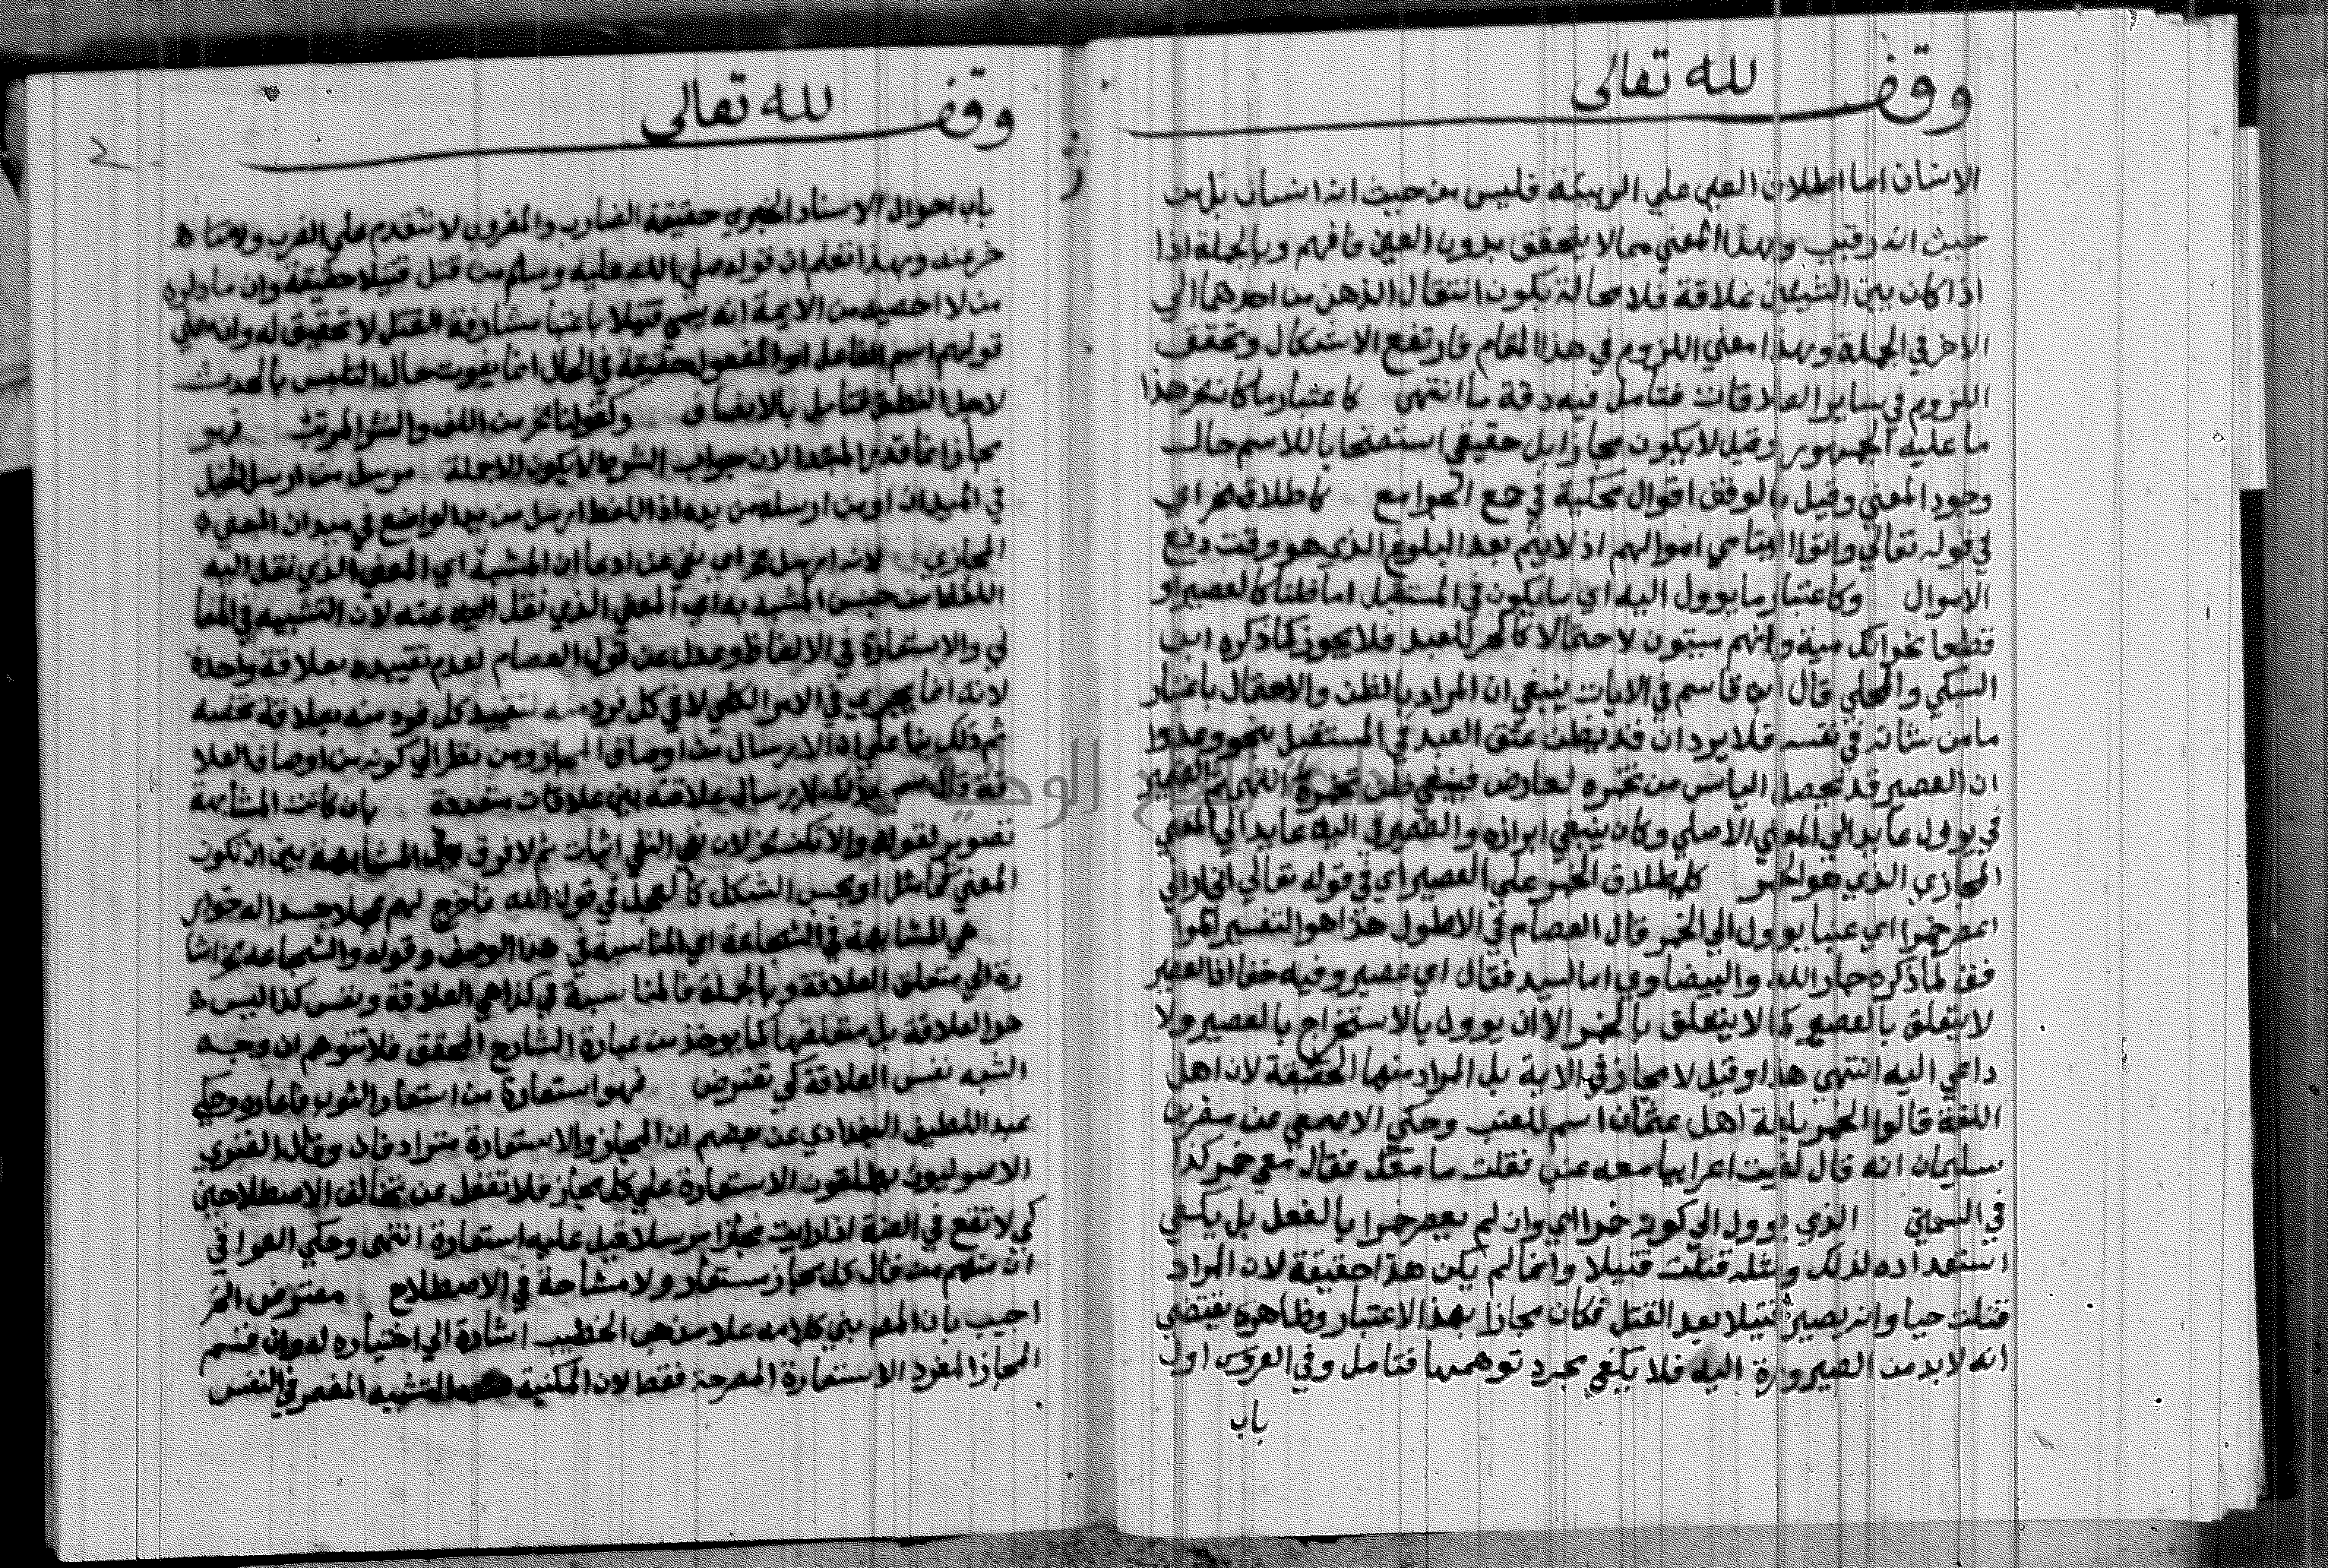 وقف لله تعالى
الانسان اما اطلاق العين علي الربيئة فليس من حيث انه انسان بل من
حيث انه رقيب وبهذا المعني مما لا يتحقق بدون العين فافهم وبالجملة اذا
اذا كان بين الشيئين علاقة فلا محالة يكون انتقال الذهن من احدهما الي
الاخر في الجملة وبهذا معني اللزوم في هذا المقام فارتفع الاشكال وتحقق
اللزوم في ساير العلاقات فتامل فيه دقة ما انتهى كاعتبار ما كان نحو هذا
ما عليه الجمهور وقيل لا يكون مجازا بل حقيقي استصحابا للاسم حالت
وجود المعني وقيل بالوقف اقوال محكية في جمع الجوامع كاطلاق نحو اي
في قوله تعالي واتوا اليتامي اموالهم اذ لا يتم بعد البلوغ الذي هو وقت دفع
الاموال وكاعتبار ما يوول اليه اي ما يكون في المستقبل اما ظنا كالعصير او
قطعا نحو انك ميت وانهم ميتون لا احتمالا كالحر للعبد فلا يجوز كما ذكره ابن
السبكي والمحلي قال ابن قاسم في الايات ينبغي ان المراد بالظن والاحتمال باعتبار
ما من شانه في نفسه فلا يرد ان قد يظن عتق العبد في المستقبل بنحو وعد وا
ان العصير قد يحصل الياس من تخمره لعارض فينبغي ظن تخمره انتهى ثم الضمير
في يوول عايد الي المعني الاصلي وكان ينبغي ابرازه والضمير في اليه عايد الي المعني
المجازي الذي هو الخمر كاطلاق الخمر علي العصير اي في قوله تعالي اني اراني
اعصر خمرا اي عنبا يوول الي الخمر قال العصام في الاطول هذا هو التفسير الموا
فق لما ذكره جار الله والبيضاوي اما السيد فقال اي عصير وفيه خفا اذ العصير
لا يتعلق بالعصير كما لا يتعلق بالخمر الا ان يوول بالاستخراج بالعصير ولا
داعي اليه انتهي هذا وقيل لا مجاز في الاية بل المراد منها الحقيقة لان اهل
اللغة قالوا الخمر بلغة اهل عمان اسم للعنب وحكي الاصمعي عن معتمر بن
سليمان انه قال لقيت اعرابيا معه عنب فقلت ما معك فقال معي خمر كذا
في السمين الذي يوول الي كونه خمرا اي وان لم يعصر خمرا بالفعل بل يكفي
استعداده لذلك ومثله قتلت قتيلا وانما لم يكن هذا حقيقة لان المراد
قتلت حيا وانه يصير قتيلا بعد القتل فكان مجازا بهذا الاعتبار وظاهره يقتضي
انه لا بد من الصيرورة اليه فلا يكفي مجرد توهمها فتامل وفي العروس اول
باب
وقف لله تعالى
باب احوال الاسناد الخبري حقيقة الضارب والمضروب لا تتقدم علي الضرب ولا تتا
خر عنه وبهذا تعلم ان قوله صلي الله عليه وسلم من قتل قتيلا حقيقة وان ما ذكره
من لا احصيه من الايمة انه سمي قتيلا باعتبار مشارفة القتل لا تحقيق له وان معني
قولهم اسم الفاعل او المفعول حقيقة في الحال انما يفوت حال التلبس بالحدث
لاهل المنطق فتامل بالانصاف وكقولنا نحو من اللف والنشر المرتب فهو
مجاز انما قدر المبتدا لان جواب الشرط لا يكون الا جملة مرسل من ارسل الخيل
في الميدان او من ارسله من يده اذ اللفظ ارسل من يد الواضع في ميدان المعني
المجازي لانه ارسل نحو اي بني عن ادعا ان المشبه اي المعني الذي نقل اليه
اللفظ من جنس المشبه به اي المعني الذي نقل اليه عنه لان التشبيه في المعا
ني والاستعارة في الالفاظ وعدل عن قول العصام لعدم تقييده بعلاقة واحدة
لانه انما يجري في الامر الكلي لا في كل فرد منه لتقييد كل فرد منه بعلاقة تخصه
ثم ذلك بنا علي ان الارسال من اوصاف المجاز ومن نظر الي كونه من اوصاف العلا
قة قال سمي بذلك لارسال علاقته بين علاقات متعددة بان كانت المشابهة
تصوير لقوله والا تكن نحو لان نفي النفي اثبات ثم لا فرق في المشابهة بين ان تكون
المعني كما مثل او بحسب الشكل كالعجل في قوله الله فاخرج لهم عجلا جسدا له خوار
هي المشابهة في الشجاعة اي المناسبة في هذا الوصف وقوله والشجاعة نحو اشا
رة الي متعلق العلاقة وبالجملة فالمناسبة في كذا هي العلاقة ونفس كذا ليس
هو العلاقة بل متعلقها كما يوخذ من عبارة الشارح المحقق فلا تتوهم ان وجه
الشبه نفس العلاقة كي تعترض فهو استعارة من استعار الثوب فاعاره وحكي
عبد اللطيف البغدادي عن بعضهم ان المجاز والاستعارة مترادفان وقال الفنري
الاصوليون يطلقون الاستعارة علي كل مجاز فلا تغفل عن تخالف الاصطلاحين
كي لا تقع في العنة اذا رايت مجازا مرسلا قيل عليه استعارة انتهى وحكي القوا في
ان منهم من قال كل مجاز مستعار ولا مشاحة في الاصطلاح معترض الخ
اجيب بان المص بني كلامه علا مذهب الخطيب اشارة الي اختياره له وان قسم
المجاز المفرد الاستعارة المصرحة فقط لان المكنية التشبيه المضمر في النفس